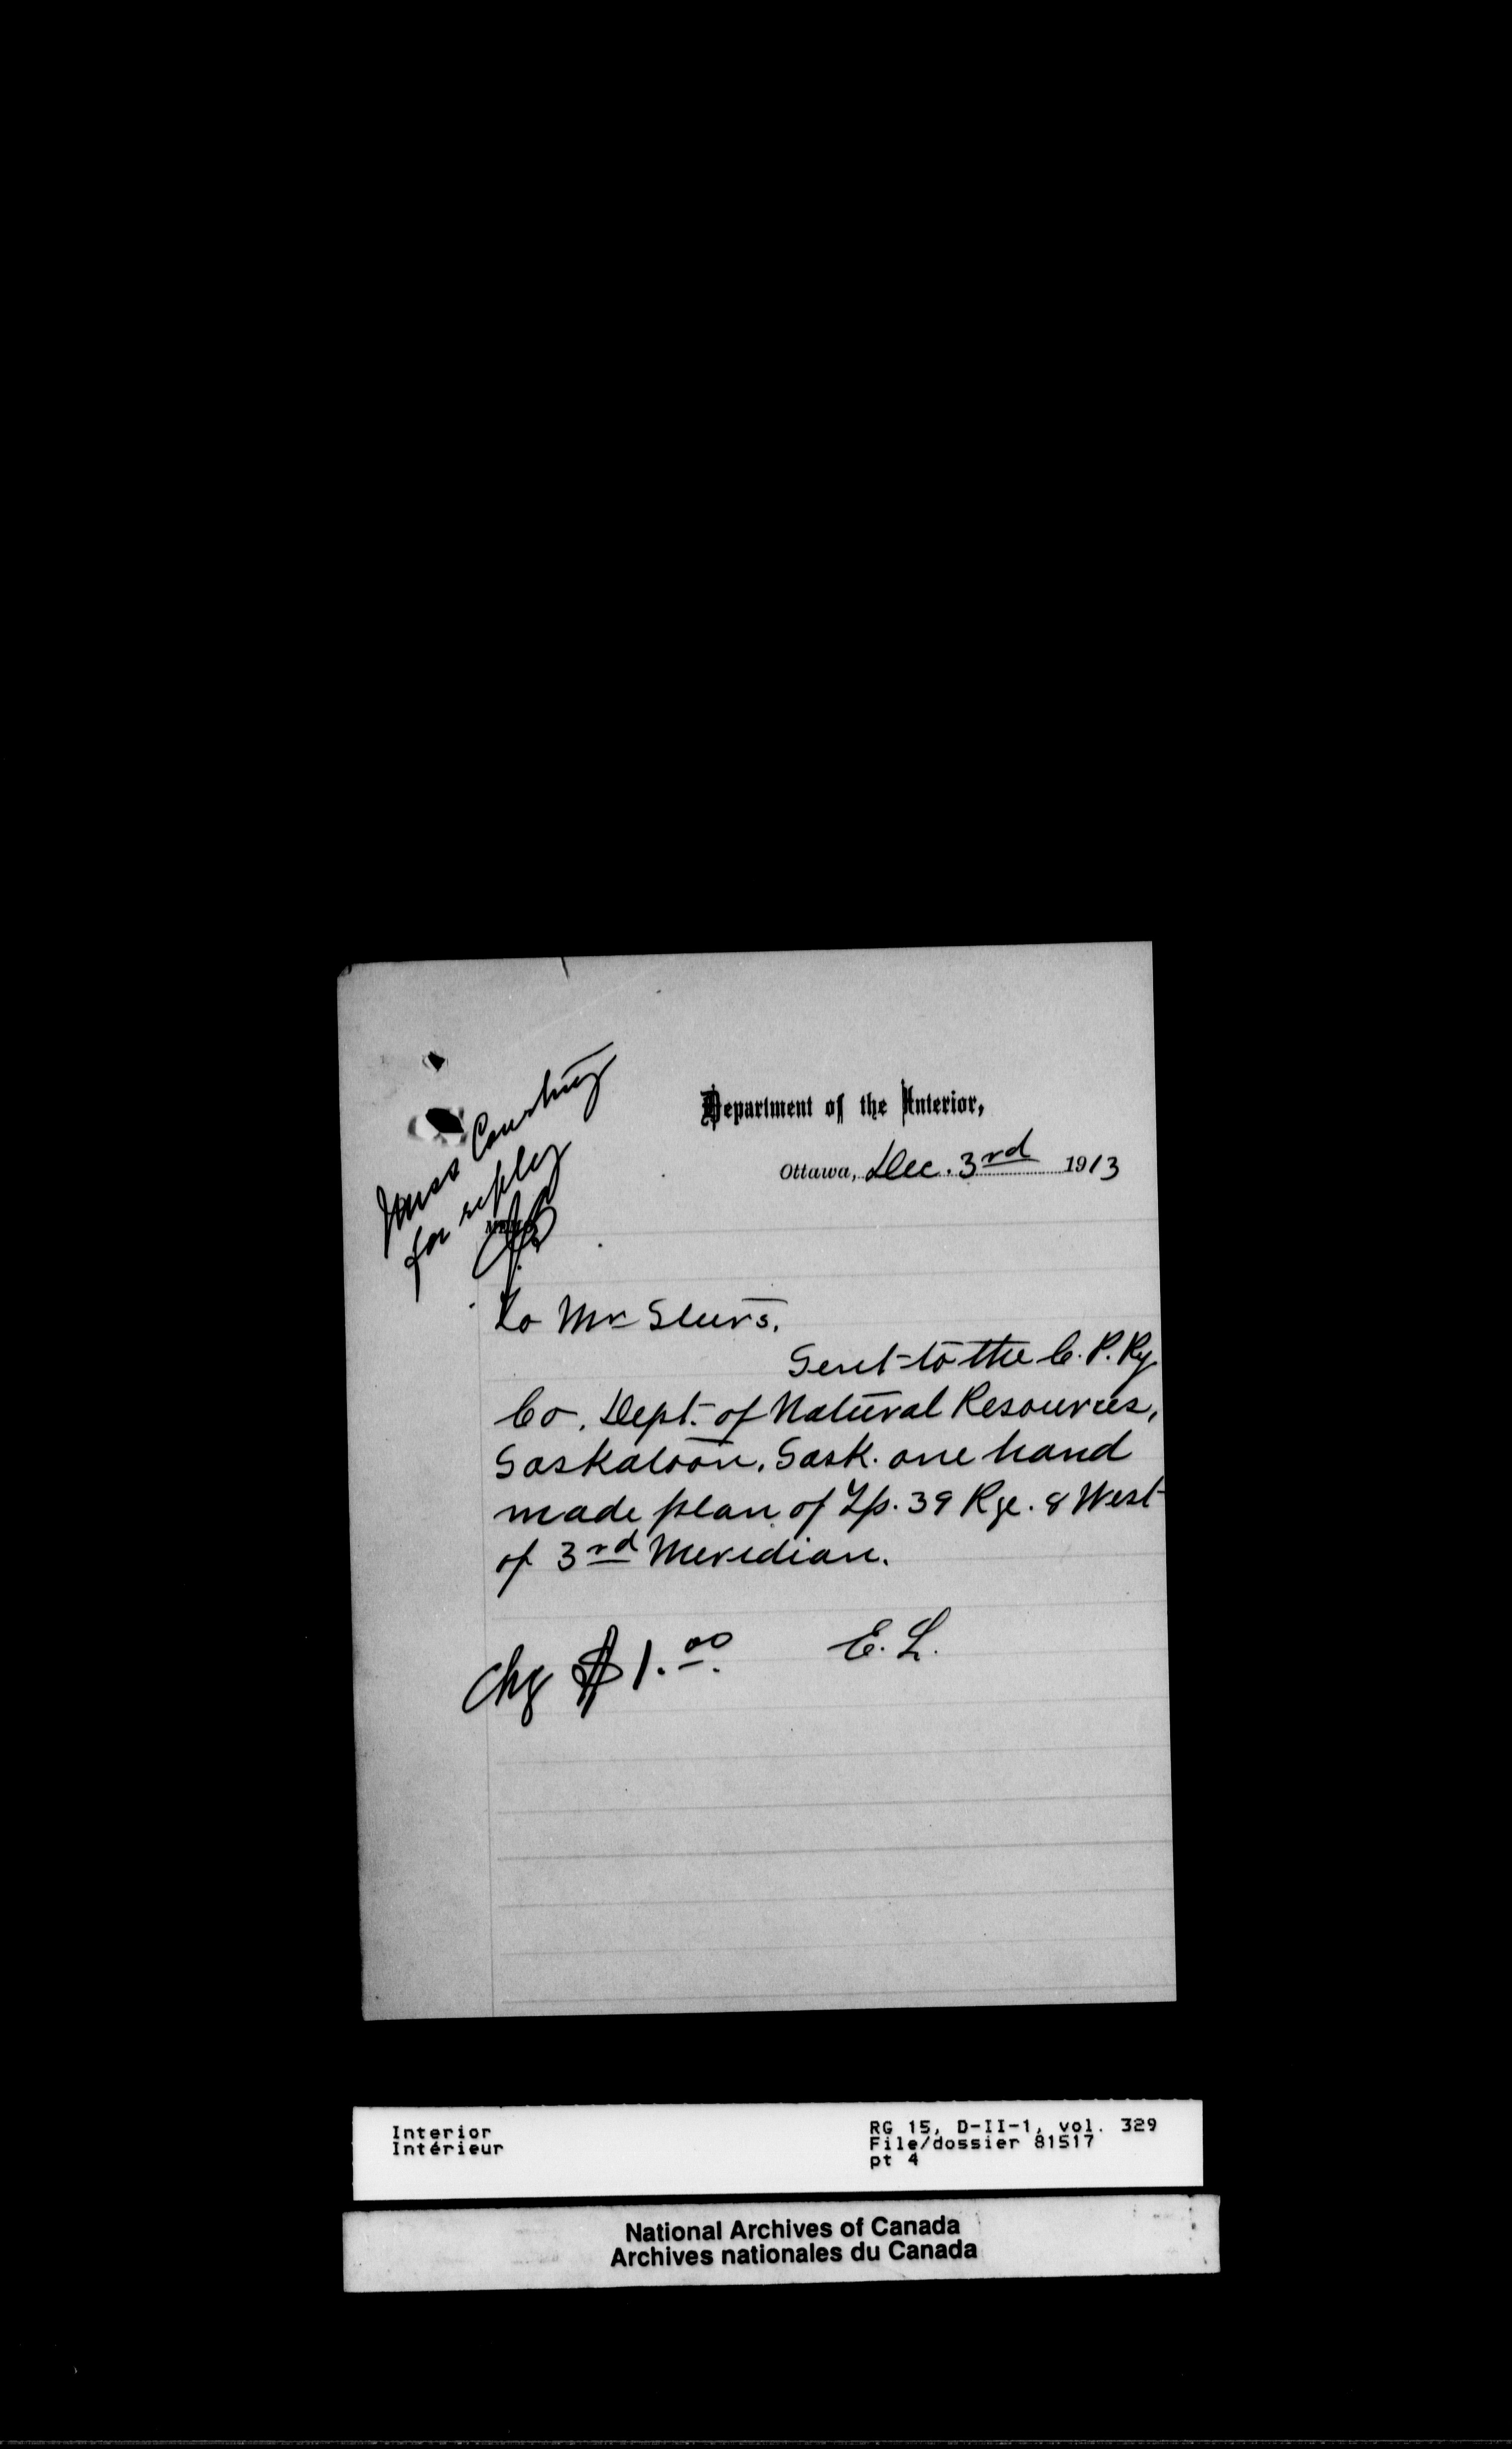 Miss Courtney
for reply
Department of the Interior,
Ottawa, Dec. 3rd 1913
To Mr Slurs.
Sent to the C. P. Ry.
Co. Dept. of Natural Resources,
Saskatoon, Sask. one hand
made plan of Tp. 39 Rge. 8 West
of 3rd Meridian.
E. L.
Chg $1.00
Interior
Intérieur
RG 15, D-II-1, vol. 329
File/dossier 81517
pt 4
National Archives of Canada
Archives nationales du Canada